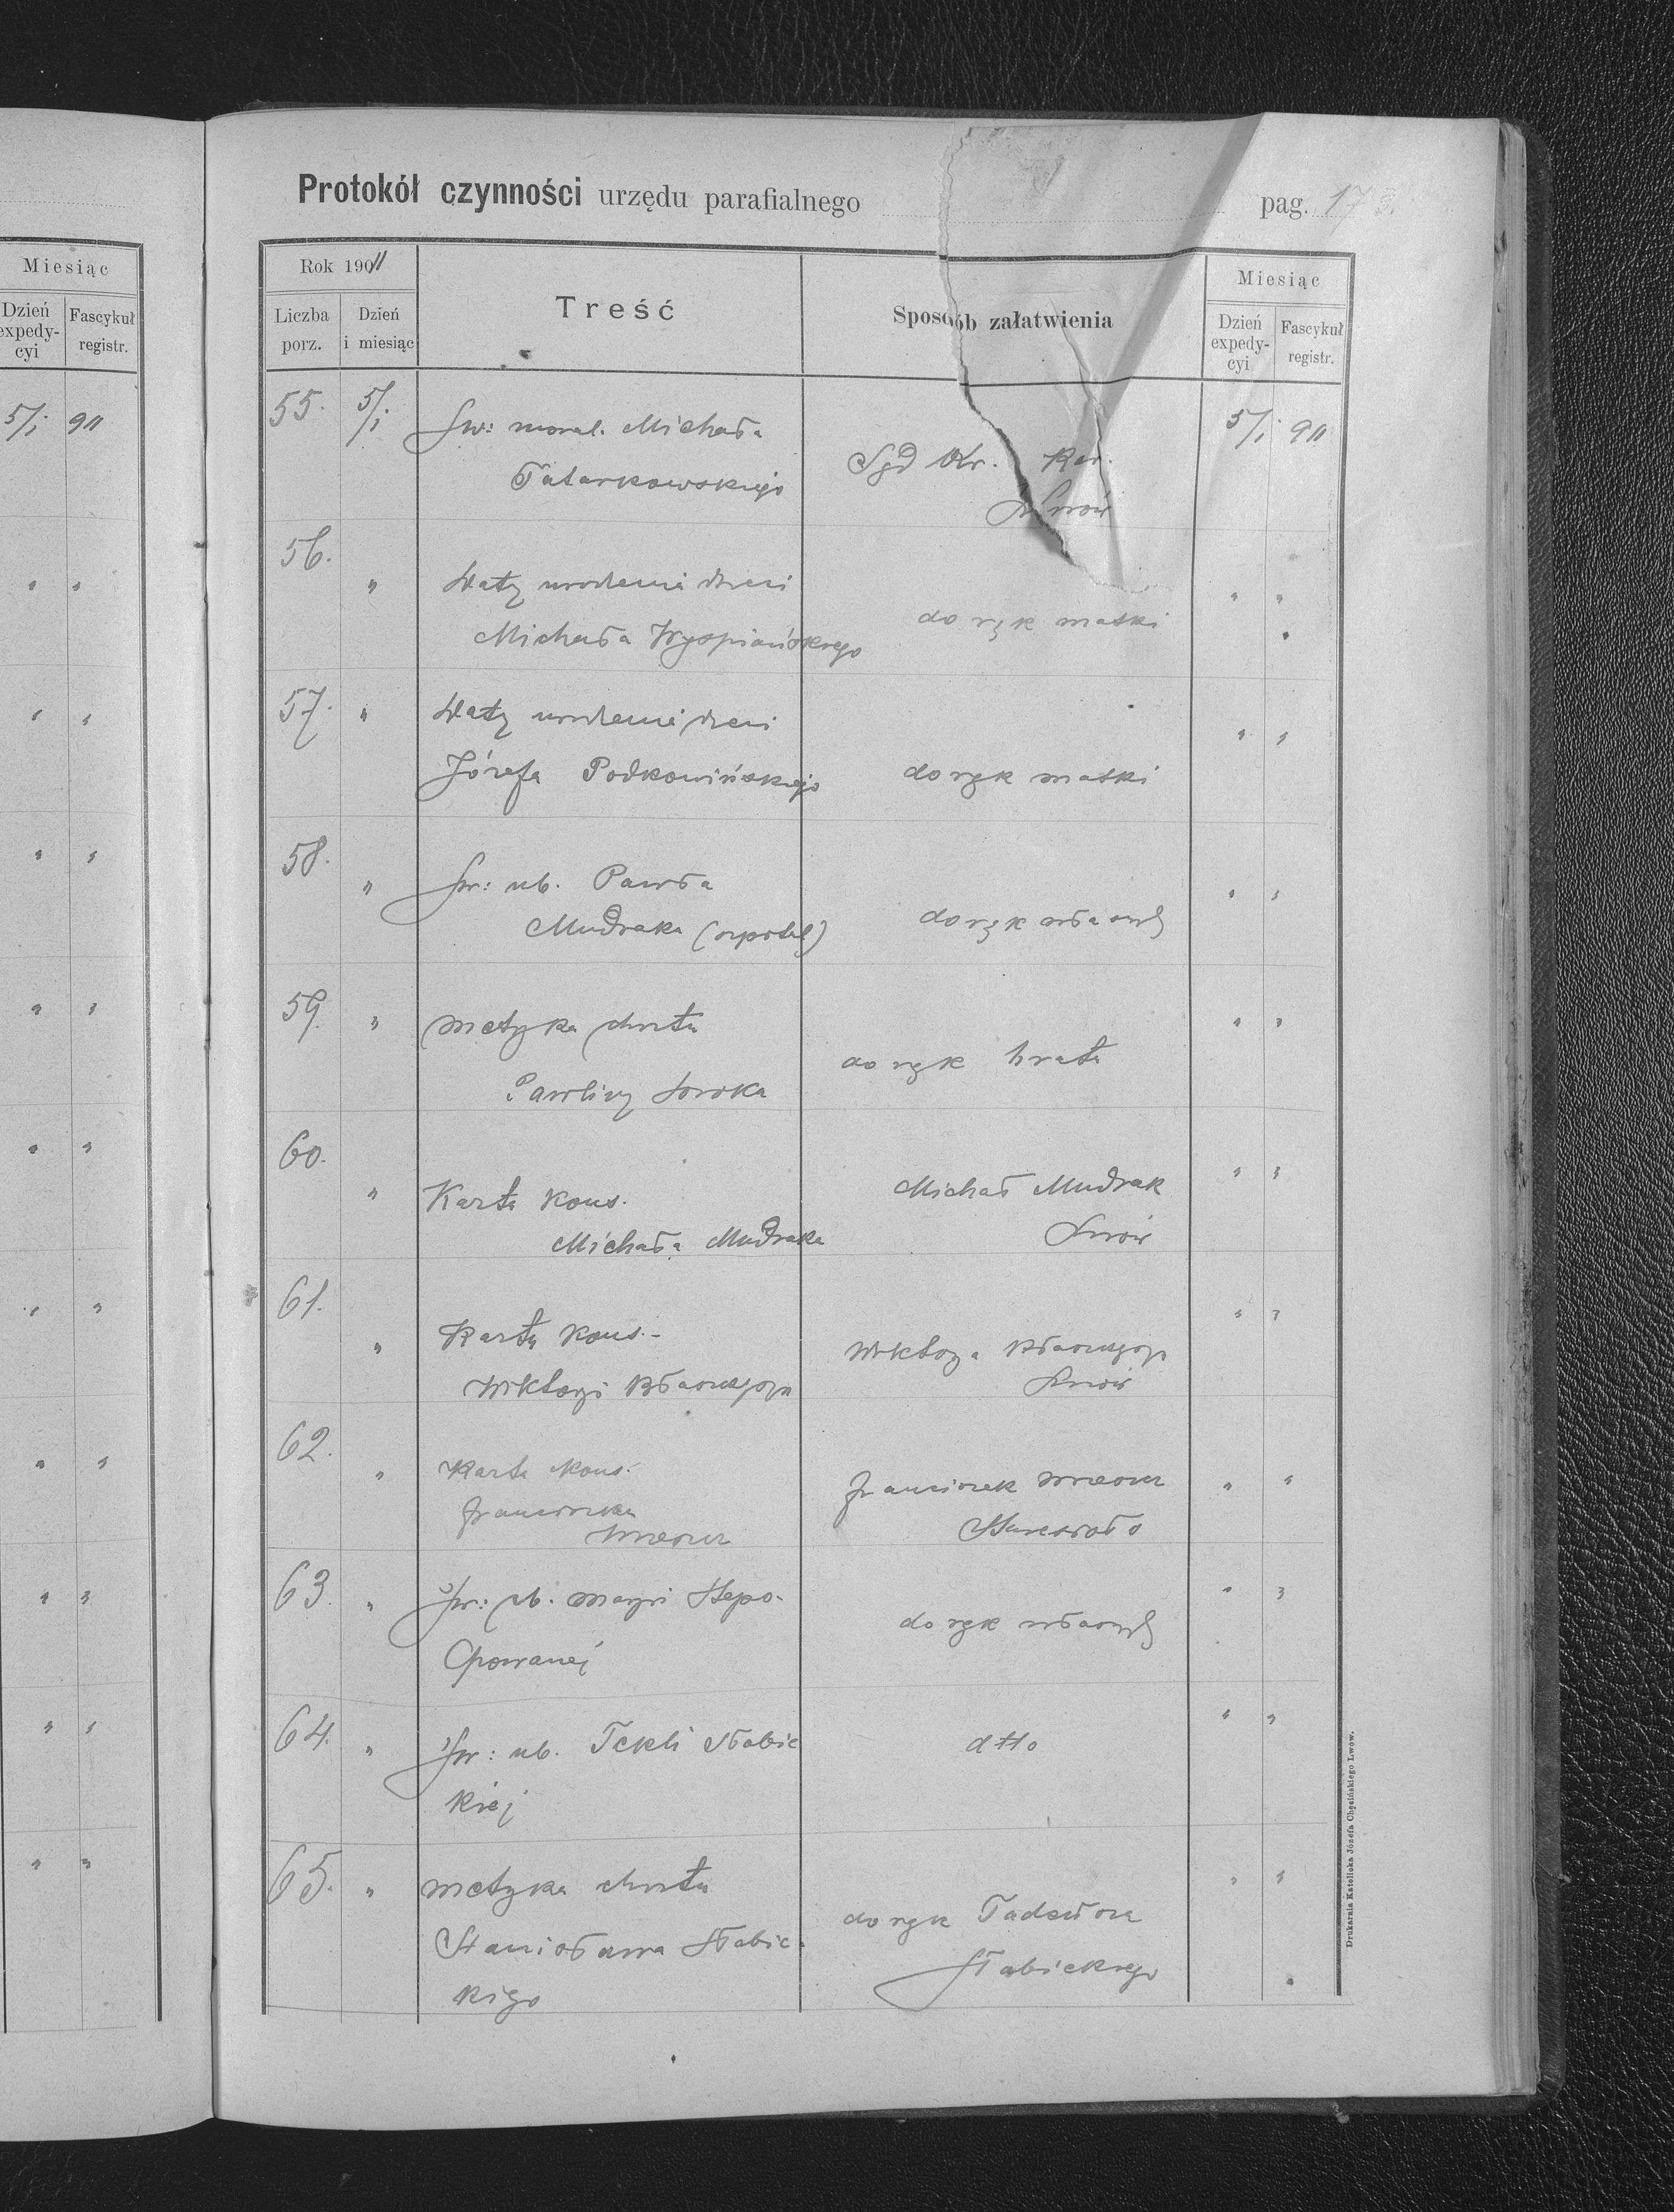 Protokół czynności urzędu parafialnego
pag. 173.
Miesiąc
Dzień expedy-cyi
Fascykuł registr.
5/I 911
Rok 1911
Liczba porz.
Dzień i miesiąc
Treść
Sposób załatwienia
Miesiąc
Dzień expedy-cyi
Fascykuł registr.
55. 5/I Św: moral. Michała
Tatarkowskiego
Sąd Kr. Kar.
Lwów
5/I 911
56. " Daty urodzenia dzieci
Michała Wyspiańskiego
do rąk matki
" "
57. " Daty urodzenia dzieci
Józefa Podkowińskiego
do rąk matki
" "
58. " Św: ub. Pawła
Mudraka (szpital)
do rąk własnych
" "
59. " Metryka chrztu
Pawliny Soroka
do rąk brata
" "
60. " Karta Kons.
Michała Mudraka
Michał Mudrak
Lwów
" "
61. " Karta Kons.
Wiktoryi
Wiktorya
Lwów
" "
62. " Karta Kons.
Franciszka
Franciszek
Staresioło
" "
63. " Św: ub. Maryi Stepo-
Do rąk własnych
" "
64. " Św: ub. Tekli Słabic
kiej
dtto
" "
65. " Metryka chrztu
Stanisława Słabic-
kigo
do rąk Tadeusza
Słabickiego
" "
Drukarnia Katolicka Józefa Chęcińskiego Lwów.